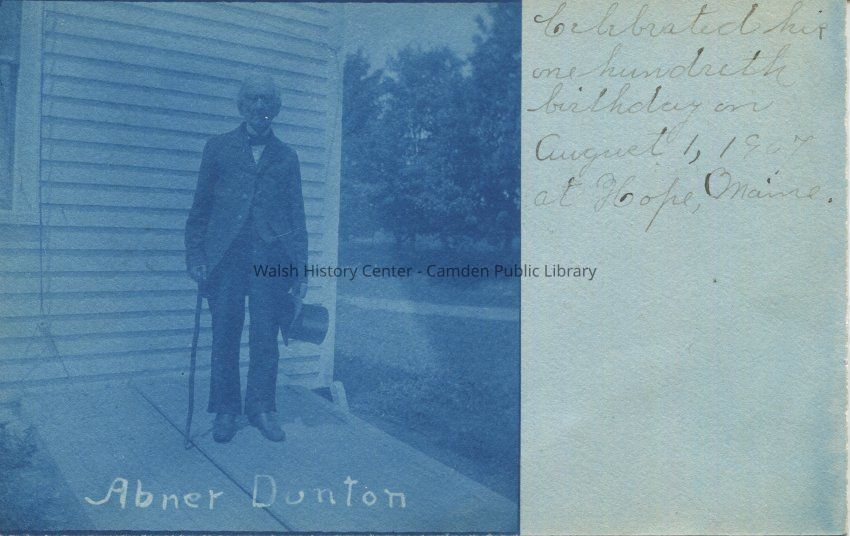 Celebrated his
one hundreth
birthday on
August 1, 1907
at Hope, Maine.
Walsh History Center - Camden Public Library
Abner Dunton